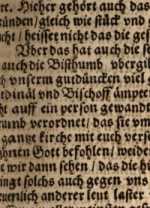 re. Hieher gehört auch das
ünden/gleich wie stück vnd
cht/heisset nicht das die ges
Uber das hat auch die s
auch die Bisthumb vbergib
ch vnserm gutdüncken viel g
dinal vnd Bischoff ämpter
cht auff ein person gewandt
rumb verordnet/das sie vm
gantze kirche mit euch verso
hönten Gott befohlen/weider
t wir dann sehen/das die hi
ingt solchs auch gegen vns
euenlich anderer leut laster